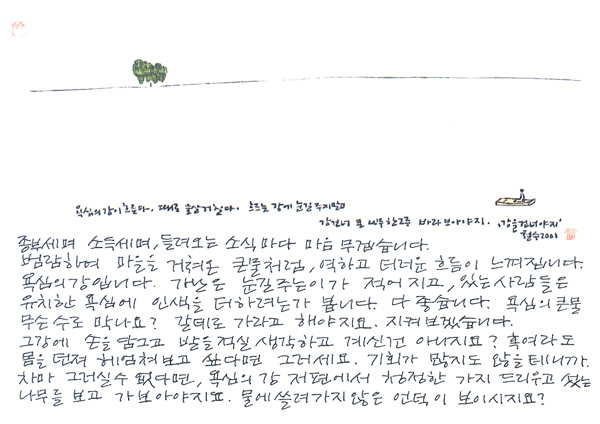 욕심의 강이 흐른다. 때로 물살 거칠다. 흐르는 강에 눈길 주지 말고
강 건너 푸른 나무 한 그루 바라보아야지. '강을 건너야지'
철수 2001
종부세며 소득세며, 들려오는 소식마다 마음 무겁습니다.
범람하여 마을을 거쳐온 큰물처럼, 역하고 더러운 흐름이 느껴집니다.
욕심의 강입니다. 가난은 눈길주는이가 적어지고, 있는 사람들은
유치한 욕심에 인색을 더하려는가 봅니다. 다 좋습니다. 욕심의 큰물
무슨 수로 막나요? 갈데로 가라고 해야지요. 지켜보겠습니다.
그강에 손을 담그고 발을 적실 생각하고 계신건 아니지요? 혹여라도
몸을 던져 헤엄쳐보고 싶다면 그러세요. 기회가 많지도 않을테니까.
차마 그러실수 없다면, 욕심의 강 저편에서 청정한 가지 드리우고 섰는
나무를 보고 가보아야지요. 물에 쓸려가지 않은 언덕이 보이시지요?